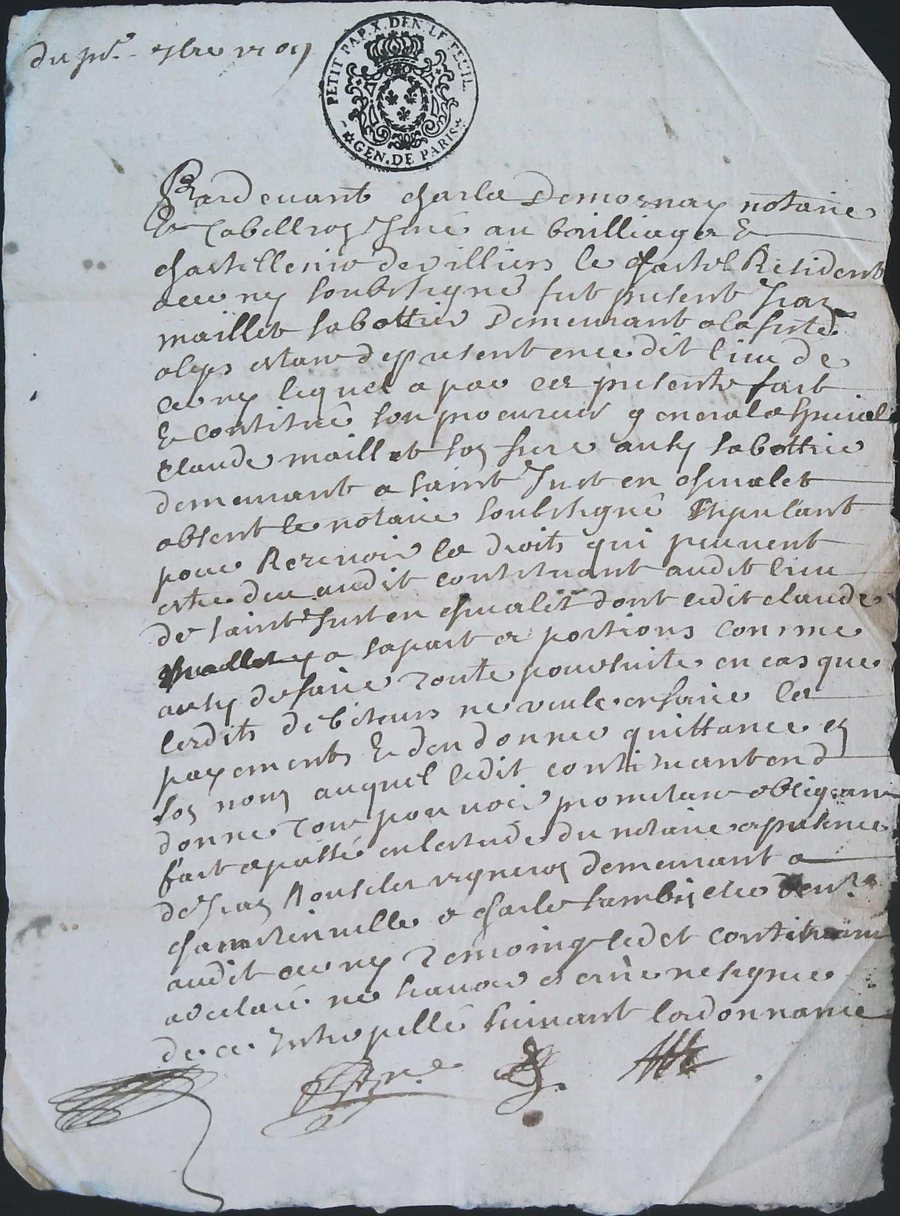 du pr. 7bre 1709
PETIT PAP. X. DEN. LE FEUIL.
GEN. DE PARIS
Pardevant charle Demornay notaire
Et Tabellion Juré au bailliage Et
chastellenie de villiers le chastel Resident
a cerny soubsigné fut present Jean
maillet sabottier Demeurant a la ferté
aleps estant de present en ce dit lieu de
cerny lequel a par ces presente fait
Et constitué son procureur general et special
Claude maillet son frere ausy sabottier
demeurant a saint Just en chvalet
absent le notaire soubsigné stipulant
pour Recevoir les droits qui peuvent
estre deu audit constituant audit lieu
de saint Just en chvalet dont ledit claude
maillet y a sa part et portions comme
ausy de faire toute poursuite en cas que
lesdits debiteurs ne veule en faire les
payements Et den donner quittance en
son nom auquel ledit constituant en
donne tout pouvoir promettant obligeant
fait et passé en lestude du notaire es presence
de Jean vigneron demeurant a
et charle dem.t
audit cerny Temoins ledit constituant
a declaré ne scavoir escrire ne signer
de ce Interpellé suivant lordonnance